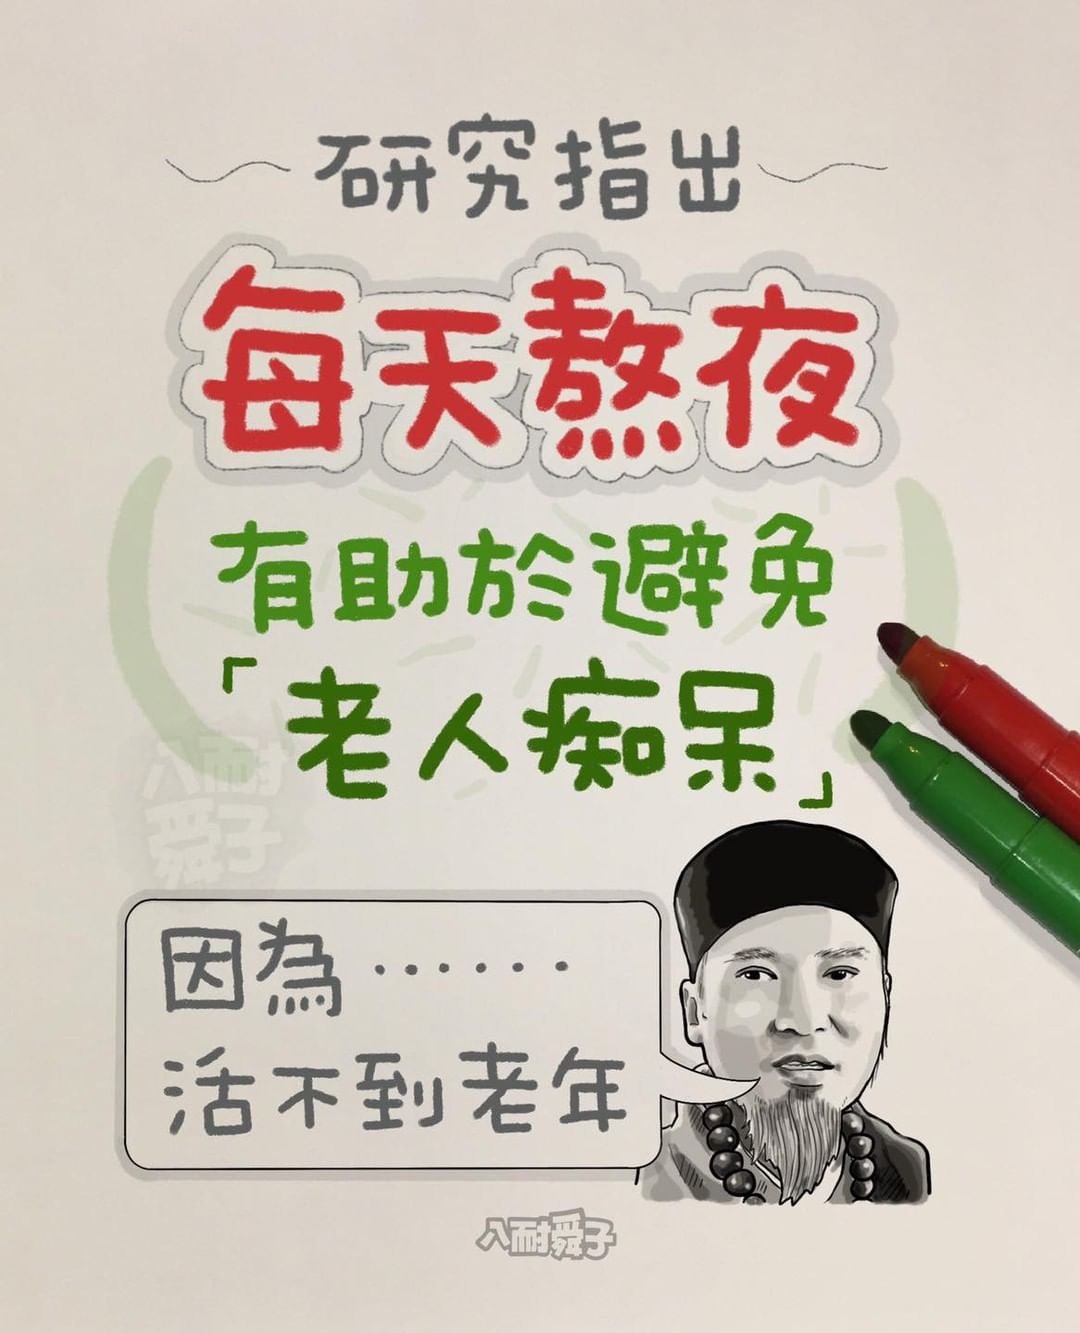 研究指出
每天熬夜
有助於避免
「老人痴呆」
八耐
舜子
因為⋯⋯
活不到老年
八耐舜子